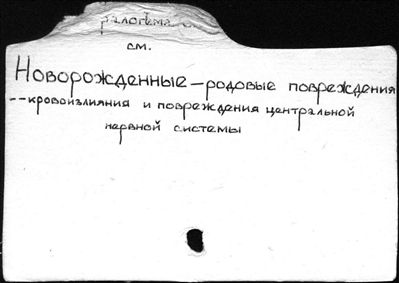 см.
Новорожденные – родовые повреждения
-- кровоизлияния и повреждения центральной
нервной системы